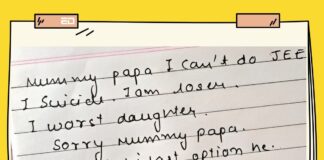 Mummy papa I can't do JEE
I Suicide. I am loser.
I worst daughter.
Sorry mummy papa.
last option he.